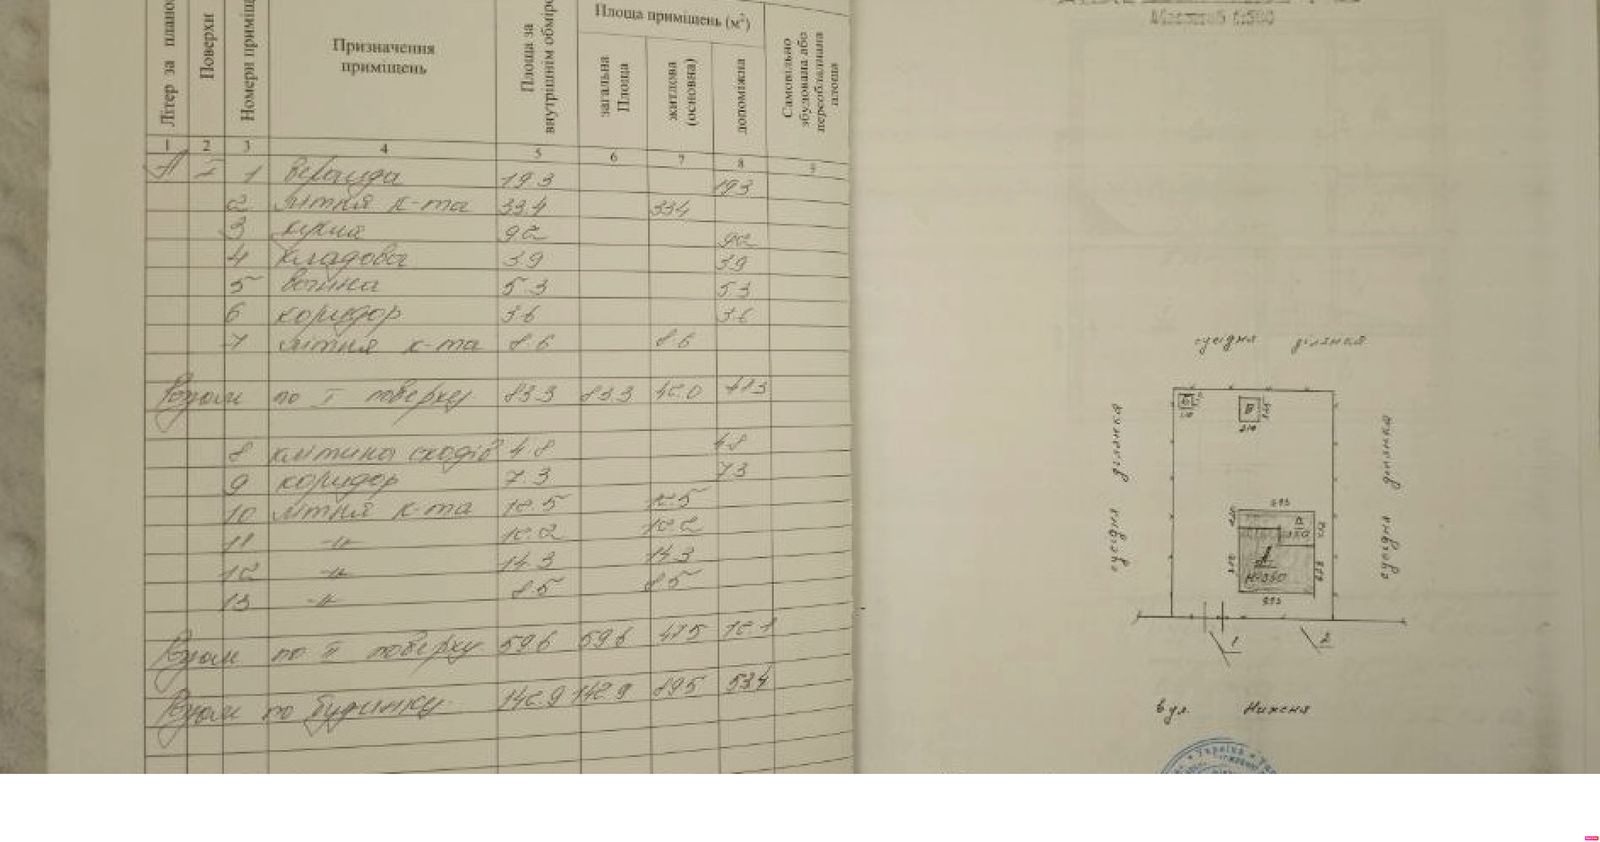 Літер за планом
Поверхи
Номери приміщ
Призначення приміщень
Площа за внутрішнім обміром
Площа приміщень (м²)
загальна Площа
житлова (основна)
допоміжна
Самовільно збудована або переобладнана площа
1 2 3 4 5 6 7 8 9
А І 1 веранда 19.3 19.3
2 літня к-та 33.4 33.4
3 кухня 9.2 9.2
4 кладова 3.9 3.9
5 ванна 5.3 5.3
6 коридор 3.6 3.6
7 літня к-та 8.6 8.6
Разом по І поверху 83.3 83.3 42.0 41.3
8 клітина сходів 4.8 4.8
9 коридор 7.3 7.3
10 літня к-та 12.5 12.5
11 -"- 12.2 12.2
12 -"- 14.3 14.3
13 -"- 8.5 8.5
Разом по ІІ поверху 59.6 59.6 47.5 12.1
Разом по будинку 142.9 142.9 89.5 53.4
Масштаб 1:500
сусідня ділянка
сусідня ділянка
сусідня ділянка
Б
В
А
1 2
вул. Нижня
Україна